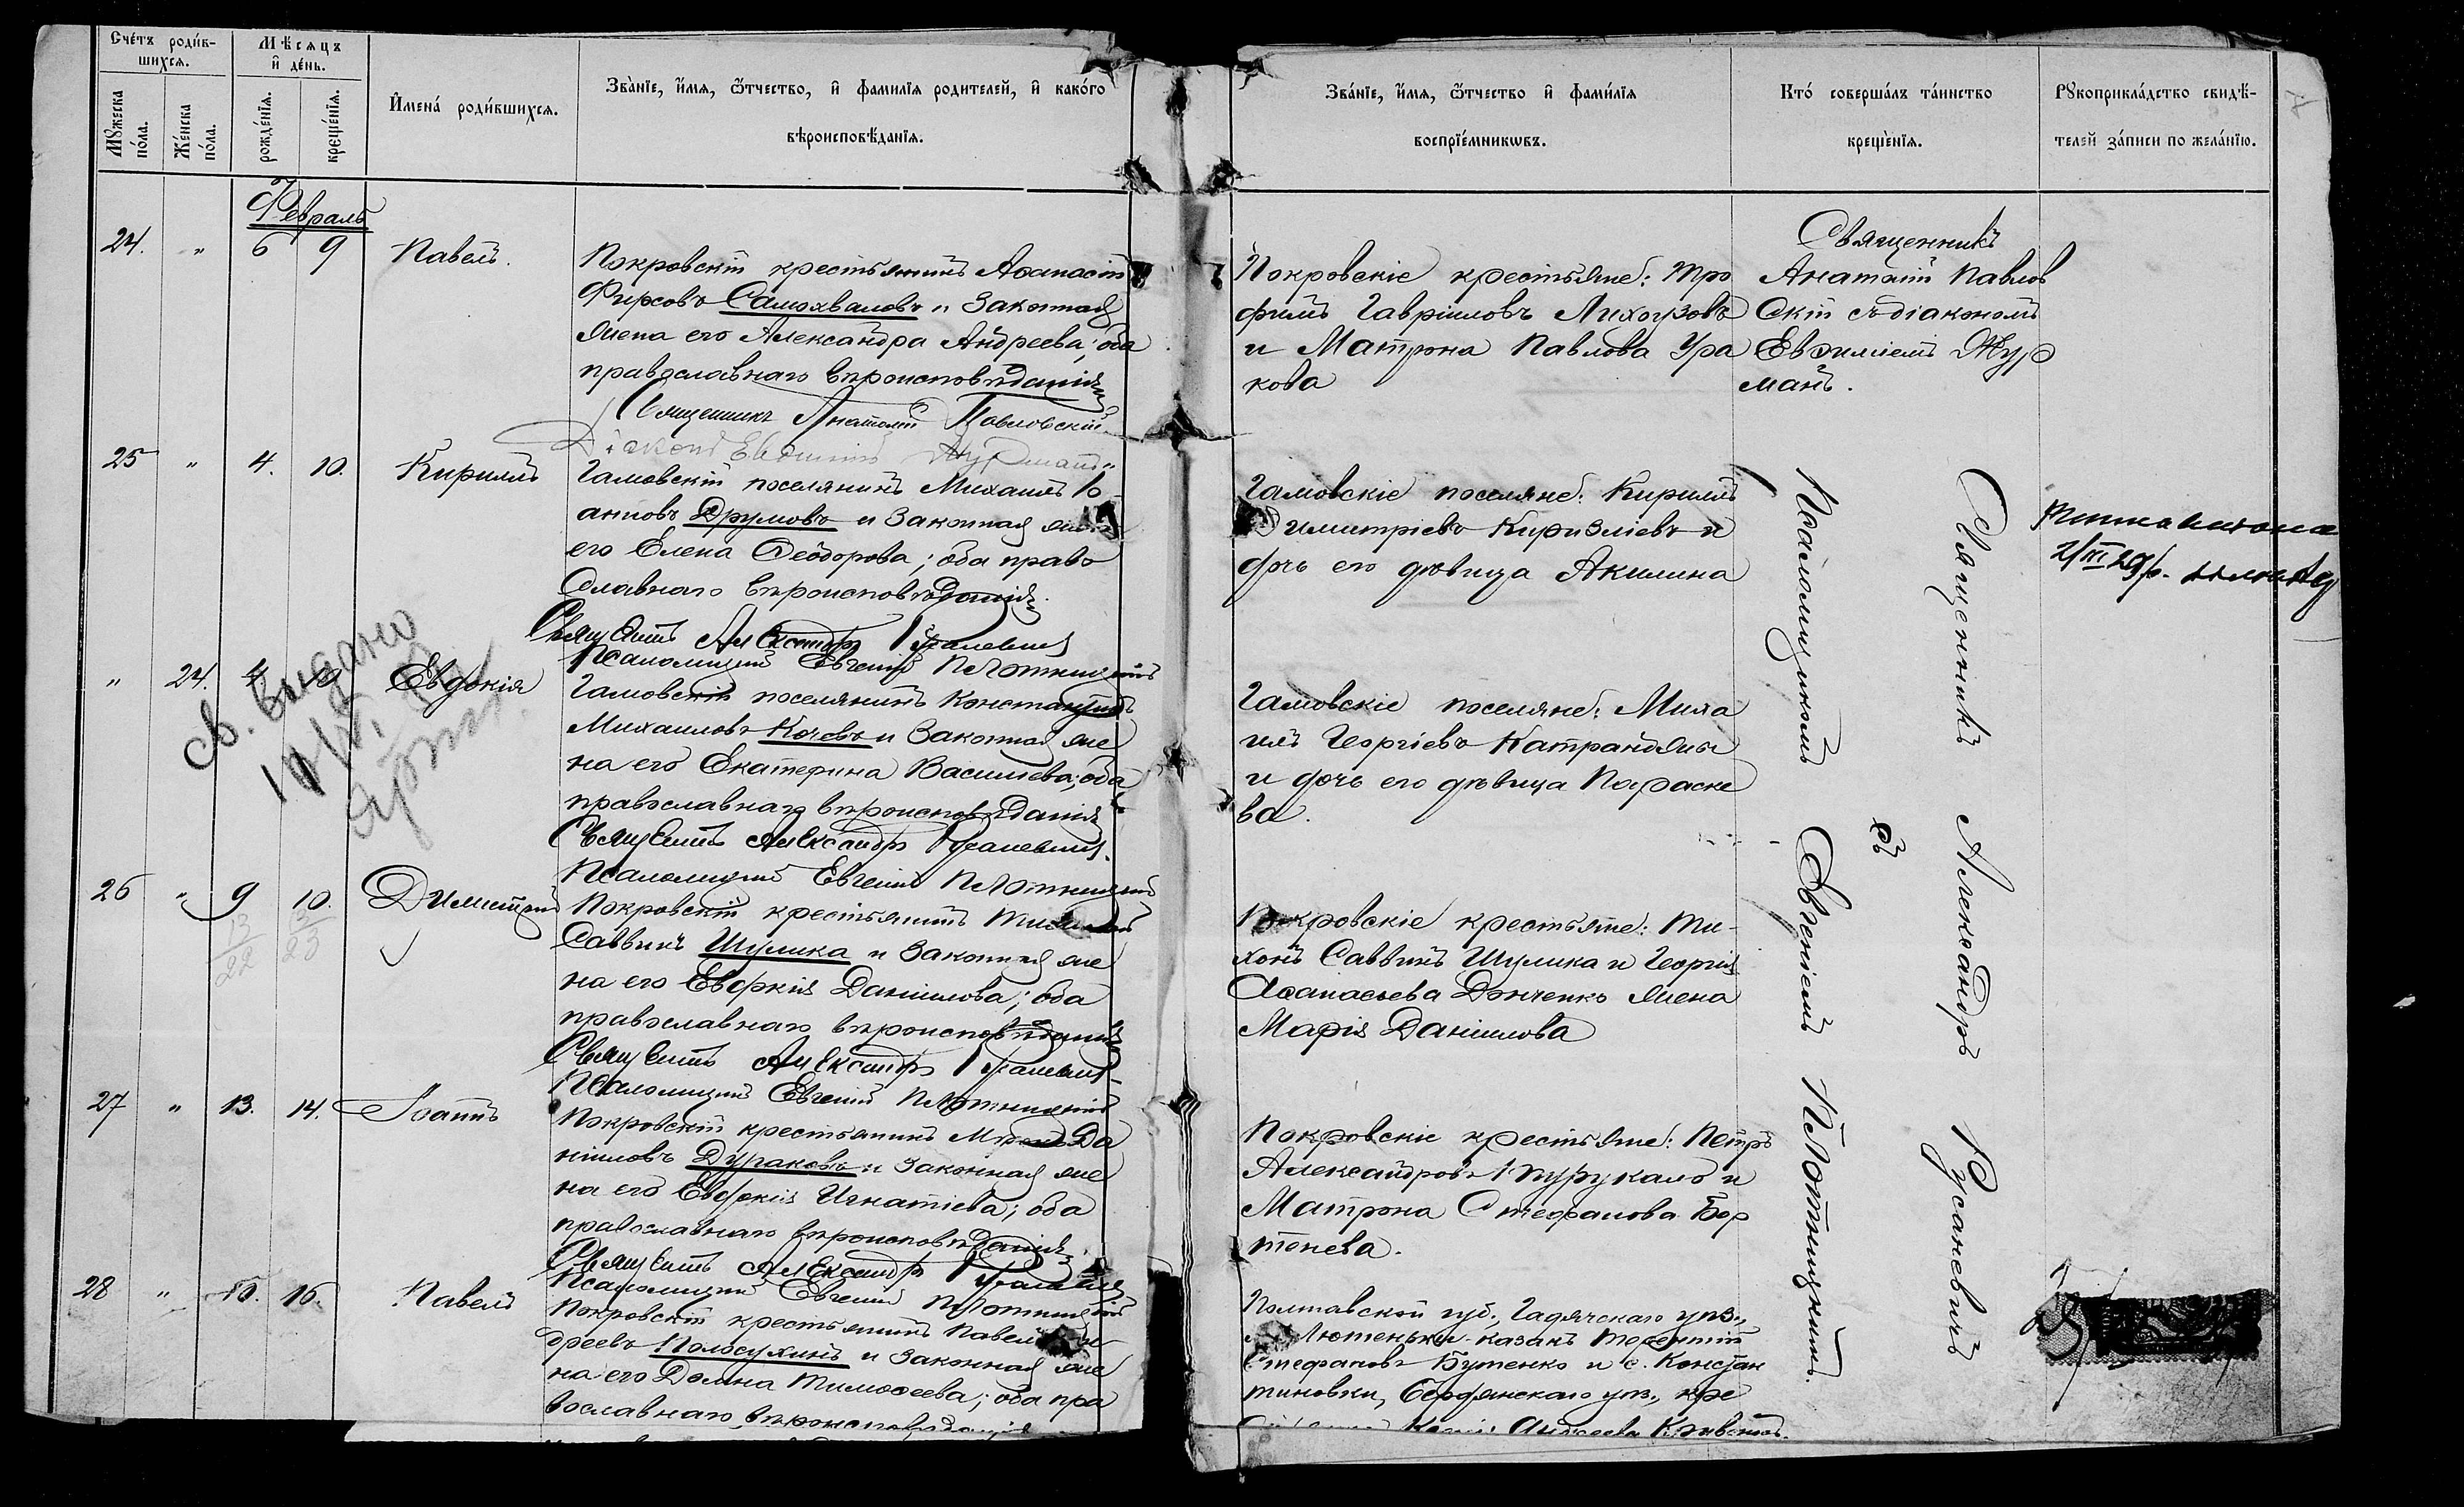 Счетъ родив-
шихся.
Мѣсяцъ
и день.
Мужеска
пола.
Женска
пола.
рожденія.
крещенія.
Имена родившихся.
Званіе, имя, отчество, и фамилія родителей, и какого
вѣроисповѣданія.
Званіе, имя, отчество и фамилія
воспріемниковъ.
Кто совершалъ таинство
крещенія.
Рукоприкладство свидѣ-
телей записи по желанію.
Февраль
24. " 6 9 Павелъ.
Покровскій крестьянинъ Аѳанасій
Фирсовъ Самохваловъ и законная
жена его Александра Андреева; оба
православнаго вѣроисповѣданія
Священникъ Анатолій Павловскій
Діаконъ Евѳимій Журманъ
Покровскіе крестьяне: Тро
фимъ Гавріиловъ и Матрона Павлова Ура
кова
Священникъ
Анатолій Павлов
скій съ діакономъ
Евѳиміемъ Жур
манъ.
25 " 4. 10. Кириллъ
Гамовскій поселянинъ Михаилъ Іо
анновъ Друмовъ и законная жена
его Елена Ѳеодорова; оба право
славнаго вѣроисповѣданія.
Священникъ Александръ Русаневичъ
Псаломщикъ Евгеній Плотницкій
Гамовскіе поселяне: Кириллъ
Димитріевъ и
дочь его дѣвица Акилина
" 24. 4. 10 Евдокія
Гамовскій поселянинъ Константинъ
Михаиловъ Кочевъ и законная же
на его Екатерина Васильева; оба
православнаго вѣроисповѣданія
Священникъ Александръ Русаневичъ.
Псаломщикъ Евгеній Плотницкій
Гамовскіе поселяне: Миха
илъ Георгіевъ Катранджи
и дочь его дѣвица Параске
ва.
св. выдано
26 " 9 10. Димитрій
13
22
23
Покровскій крестьянинъ
Саввинъ Шулика и законная же
на его Евдокія Даніилова; оба
православнаго вѣроисповѣданія
Священникъ Александръ Русаневичъ
Псаломщикъ Евгеній Плотницкій
Покровскіе крестьяне: Ти-
хонъ Саввинъ Шулика и Георгія
Аѳанасьева Донченко жена
Марія Даніилова
27 " 13. 14. Іоаннъ
Покровскій крестьянинъ Да
ніиловъ Дураковъ и законная же
на его Евдокія Игнатіева; оба
православнаго вѣроисповѣданія.
Священникъ Александръ Русаневичъ
Псаломщикъ Евгеній Плотницкій
Покровскіе крестьяне: Петръ
Александровъ и
Матрона Стефанова Бор
тенева.
28 " 15. 16. Павелъ
Покровскій крестьянинъ Павелъ Ан
дреевъ Полосухинъ и законная же
на его Домна Тимоѳеева; оба пра
вославнаго вѣроисповѣданія
Полтавской губ., Гадячскаго уѣз.,
м. Лютеньки казакъ Терентій
Стефановъ Бутенко и с. Констан
тиновки, Бердянскаго уѣз., кре
Андреева
Священникъ Александръ Русаневичъ
съ
Псаломщикомъ Евгеніемъ Плотницкимъ.